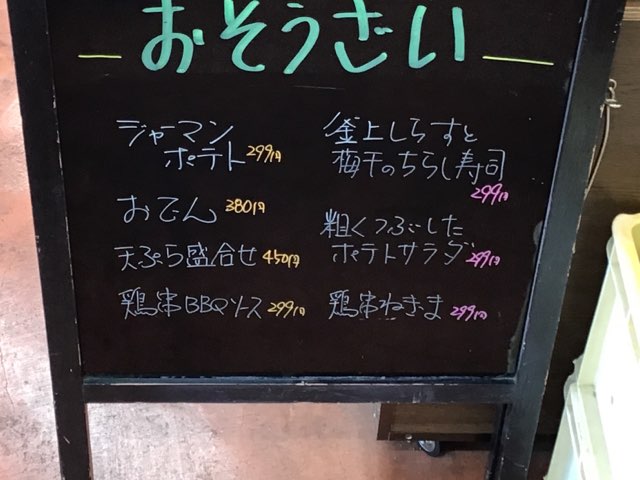 おそうざい
ジャーマン
ポテト 299円
おでん 380円
天ぷら盛合せ 450円
鶏串BBQソース 299円
釜上しらすと
梅干のちらし寿司
299円
粗くつぶした
ポテトサラダ 299円
鶏串ねぎま 299円